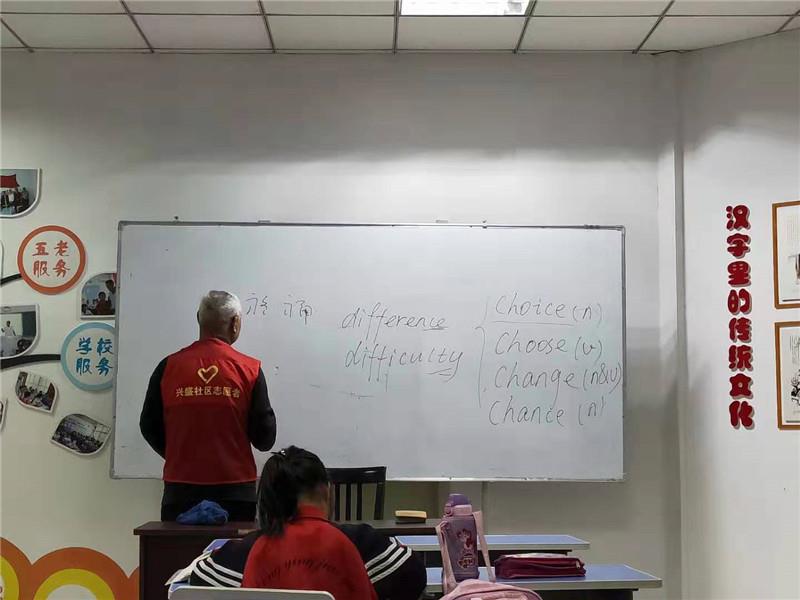 五老
服务
学校
服务
兴盛社区志愿者
difference
difficulty
Choice (n)
Choose (v)
Change (n&v)
Chance (n)
汉字里的传统文化